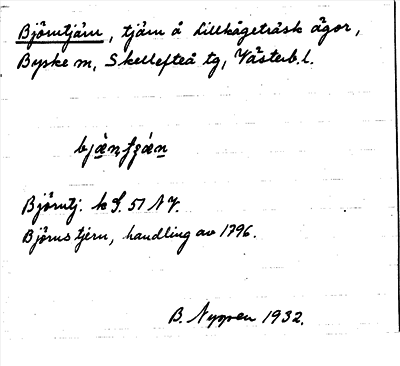 Björntjärn, tjärn å Lillkågeträsk ägor,
Byske m, Skellefteå tg, Västerb. l.
Björntj. k S. 51 NV.
Björns tjern, handling av 1796.
B. Nyman 1932.